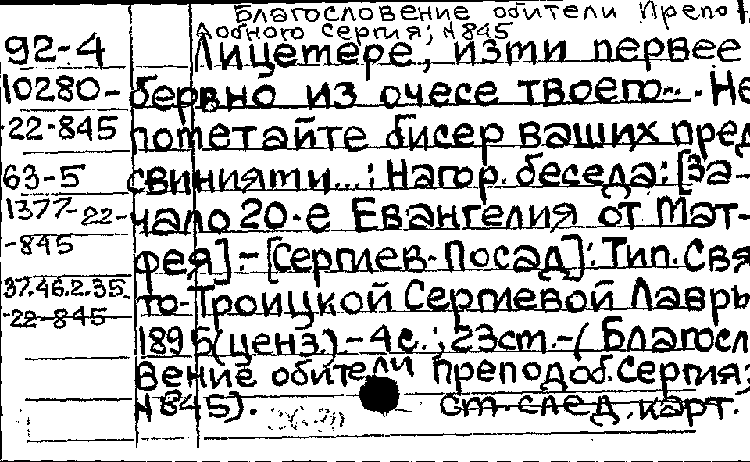 Благословение обители Препо
добного Сергия; N845
92-4 Лицемере, изми первее
10280- бервно из очесе твоего... Не
22-845 пометайте бисер ваших пред
63-5 свиниями...: Нагор. беседа: [За-
1377-22- чало 20-е Евангелия от Мат-
-845 фея].- [Сергиев-Посад]: Тип. Свя
37.46.2.35. то-Троицкой Сергиевой Лавры
-22-845 1895(ценз.).-4с.; 23см.-(Благосл
вение обители преподоб. Сергия;
N845). см. след. карт.